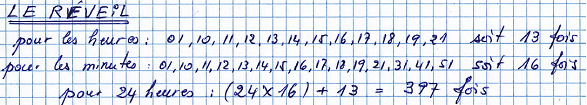 LE RÉVEIL
pour les heures : 01, 10, 11, 12, 13, 14, 15, 16, 17, 18, 19, 21 soit 13 fois
pour les minutes : 01, 10, 11, 12, 13, 14, 15, 16, 17, 18, 19, 21, 31, 41, 51 soit 16 fois
pour 24 heures : (24 x 16) + 13 = 397 fois